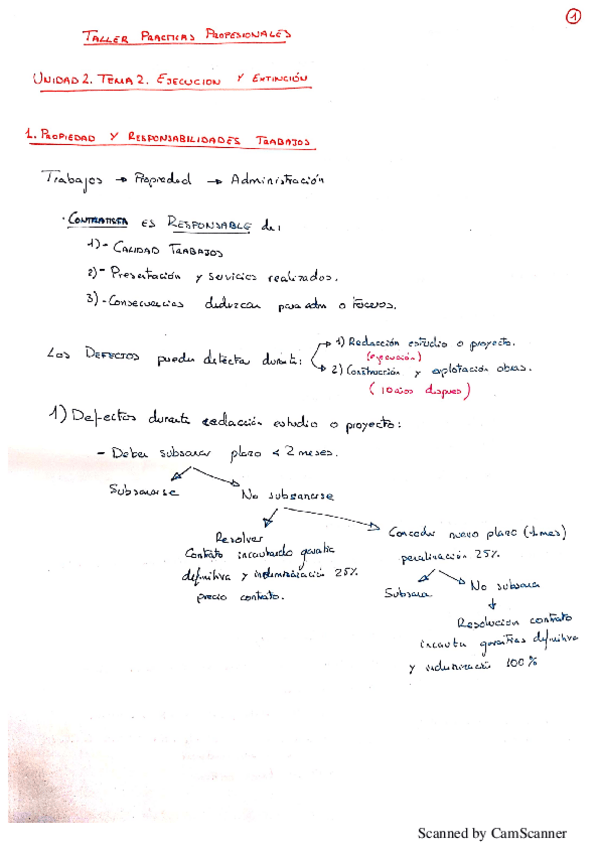 1
TALLER PRACTICAS PROFESIONALES
UNIDAD 2. TEMA 2. EJECUCION Y EXTINCIÓN
1. PROPIEDAD Y RESPONSABILIDADES TRABAJOS
Trabajos → Propiedad → Administración
· CONTRATISTA ES RESPONSABLE de:
1)- CALIDAD TRABAJOS
2)- Presentación y servicios realizados.
3)- Consecuencias deduzcan para adm o terceros.
Los DEFECTOS pueden detectar durante:
1) Redacción estudio o proyecto.
(ejecución)
2) Construcción y explotación obras.
(10 años despues)
1) Defectos durante redacción estudio o proyecto:
- Deben subsanar plazo < 2 meses.
Subsanarse
No subsanarse
Resolver
Contrato incautando garantia
definitiva y indemnización 25%
precio contrato.
Conceder nuevo plazo (1 mes)
penalización 25%
Subsana
No subsana
Resolucion contrato
incauta garantias definitiva
y indemnización 100%
Scanned by CamScanner